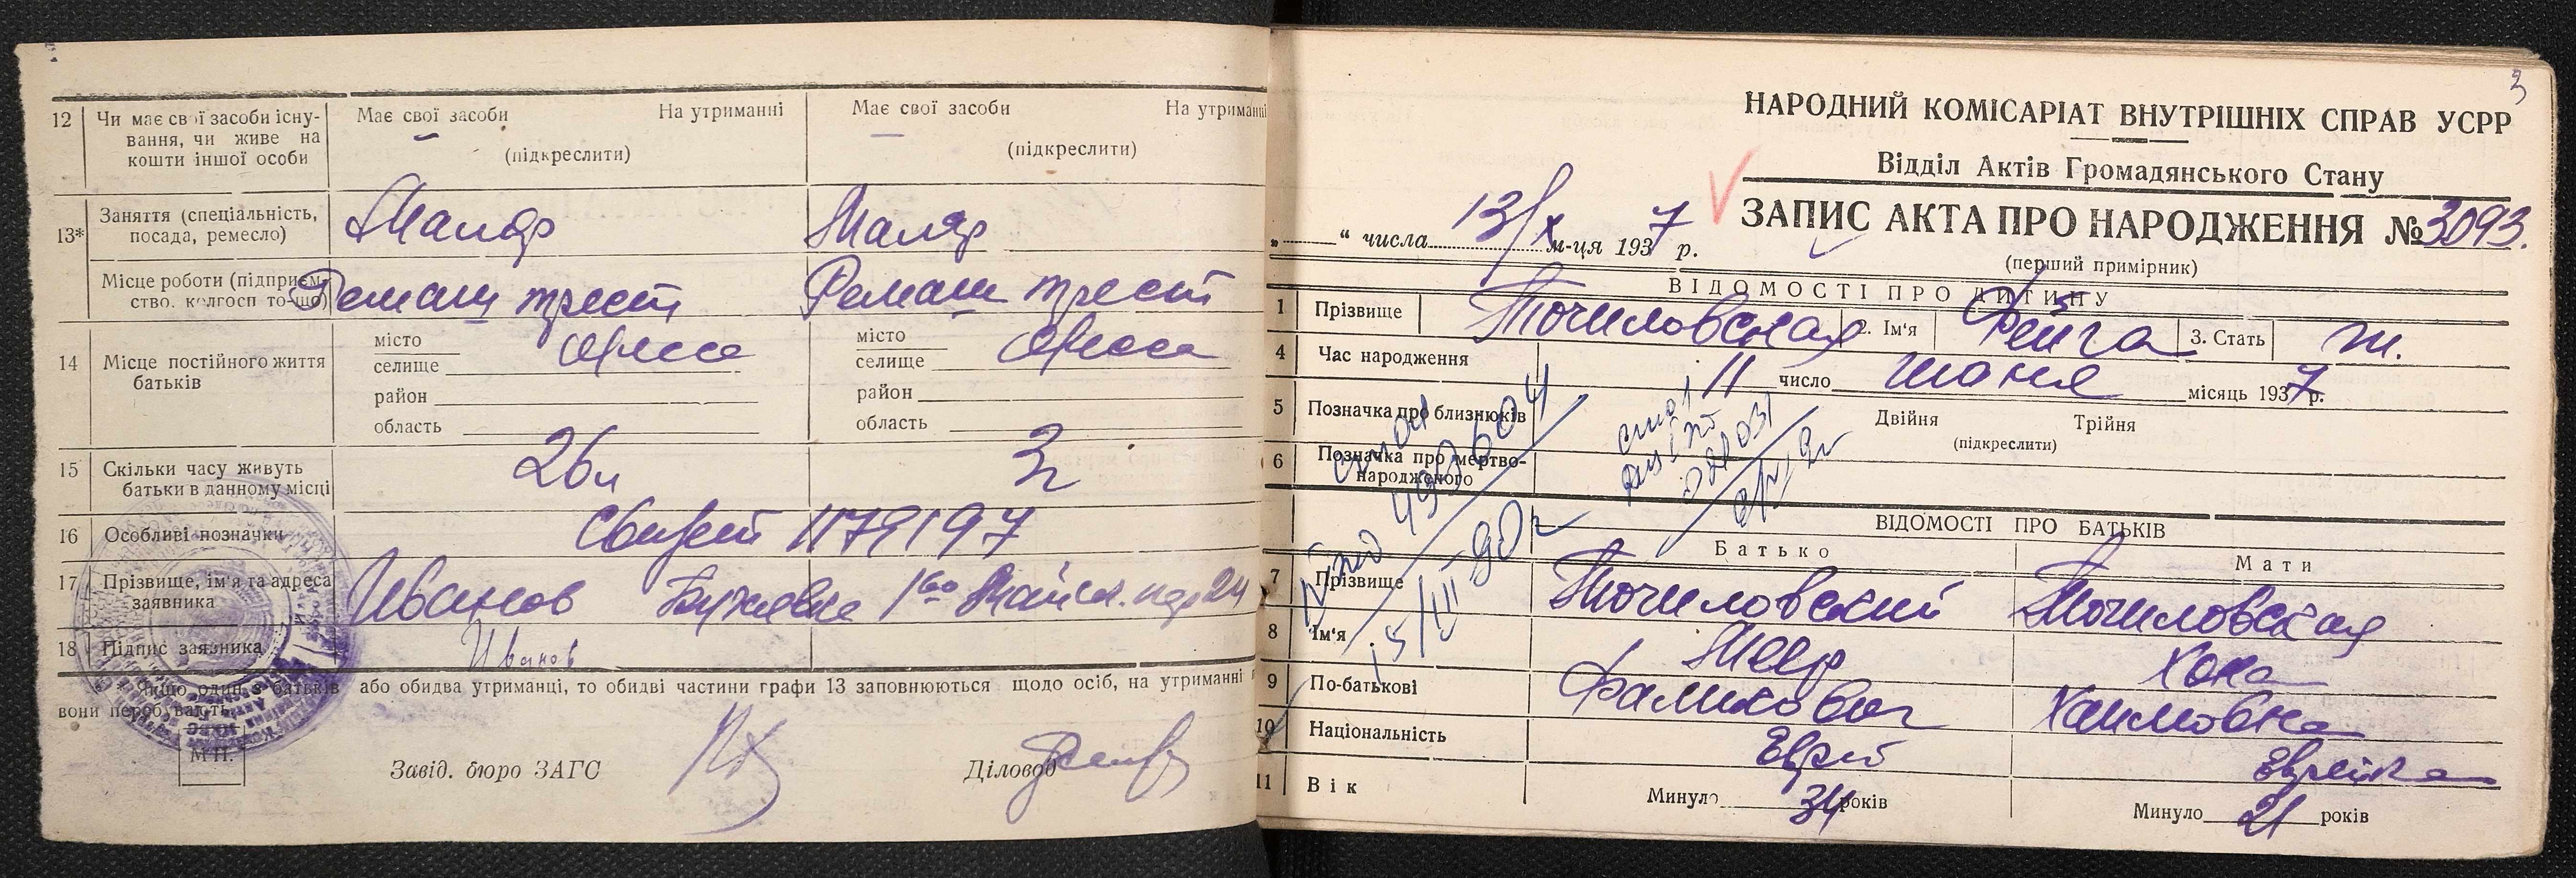 12 Чи має свої засоби існування, чи живе на кошти іншої особи
Має свої засоби На утриманні
(підкреслити)
Має свої засоби На утриманні
(підкреслити)
13* Заняття (спеціальність, посада, ремесло)
Маляр Маляр
Місце роботи (підприємство, колгосп тощо)
Ремаш трест Ремаш трест
14 Місце постійного життя батьків
місто
селище Одесса
район
область
місто
селище Одесса
район
область
15 Скільки часу живуть батьки в данному місці
26л 3г
16 Особливі позначки
1179197
17 Прізвище, ім'я та адреса заявника
Иванов 1го 24
18 Підпис заявника
Иванов
* Якщо один з батьків або обидва утриманці, то обидві частини графи 13 заповнюються щодо осіб, на утриманні
вони перебувають.
М П.
Завід. бюро ЗАГС Діловод
3
НАРОДНИЙ КОМІСАРІАТ ВНУТРІШНІХ СПРАВ УСРР
Відділ Актів Громадянського Стану
ЗАПИС АКТА ПРО НАРОДЖЕННЯ № 3093.
(перший примірник)
„ “ числа 13/X м-ця 1937 р.
ВІДОМОСТІ ПРО ДИТИНУ
1 Прізвище Точиловская 2. Ім'я Фейга 3. Стать ж.
4 Час народження
11 число июня місяць 1937 р.
5 Позначка про близнюків
Двійня Трійня
(підкреслити)
6 Позначка про мертвонародженого
15/III 90г
ВІДОМОСТІ ПРО БАТЬКІВ
Батько Мати
7 Прізвище Точиловский Точиловская
8 Ім'я Меер Хона
9 По-батькові Фаликович Хаимовна
10 Національність Еврей Еврейка
11 Вік Минуло 34 років Минуло 21 років